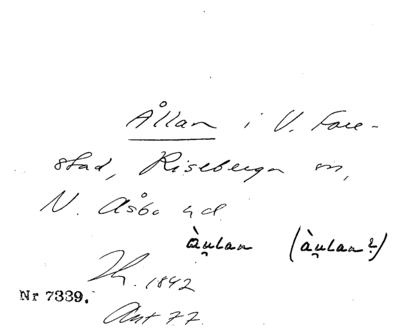 Ållan i V. Fore-
stad, Riseberga sn,
N. Åsbo hd.
àu̯lan (àu̯lan?)
Th. 1842
Nr 7339.
Ant 77.